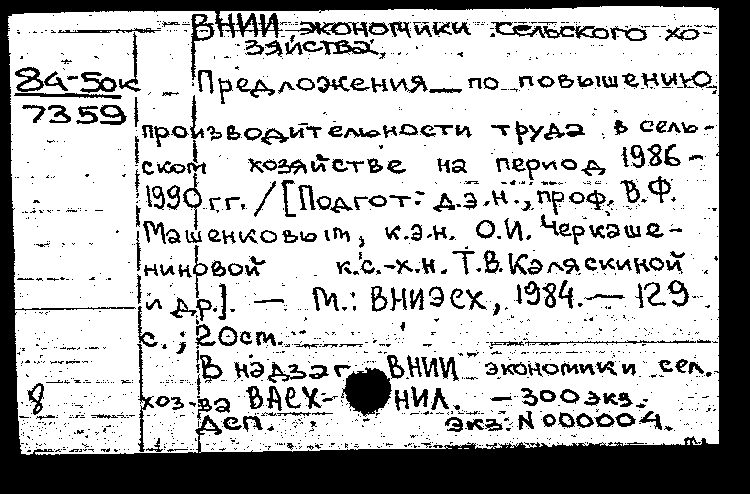 ВНИИ экономики сельского хо-
зяйства,
84-50к
7359
Предложения по повышению
производительности труда в сель-
ском хозяйстве на период 1986-
1990 гг. / [Подгот.: д.э.н., проф. В.Ф.
Машенковым, к.э.н. О.И. Черкаше-
ниновой к.с.-х.н. Т.В. Каляскиной
и др.]. — М.: ВНИЭСХ, 1984. — 129
с.; 20 см.
В надзаг. ВНИИ экономики сел.
хоз-ва ВАСХ-НИЛ. - 300 экз.
8
Деп. экз. N 000004.